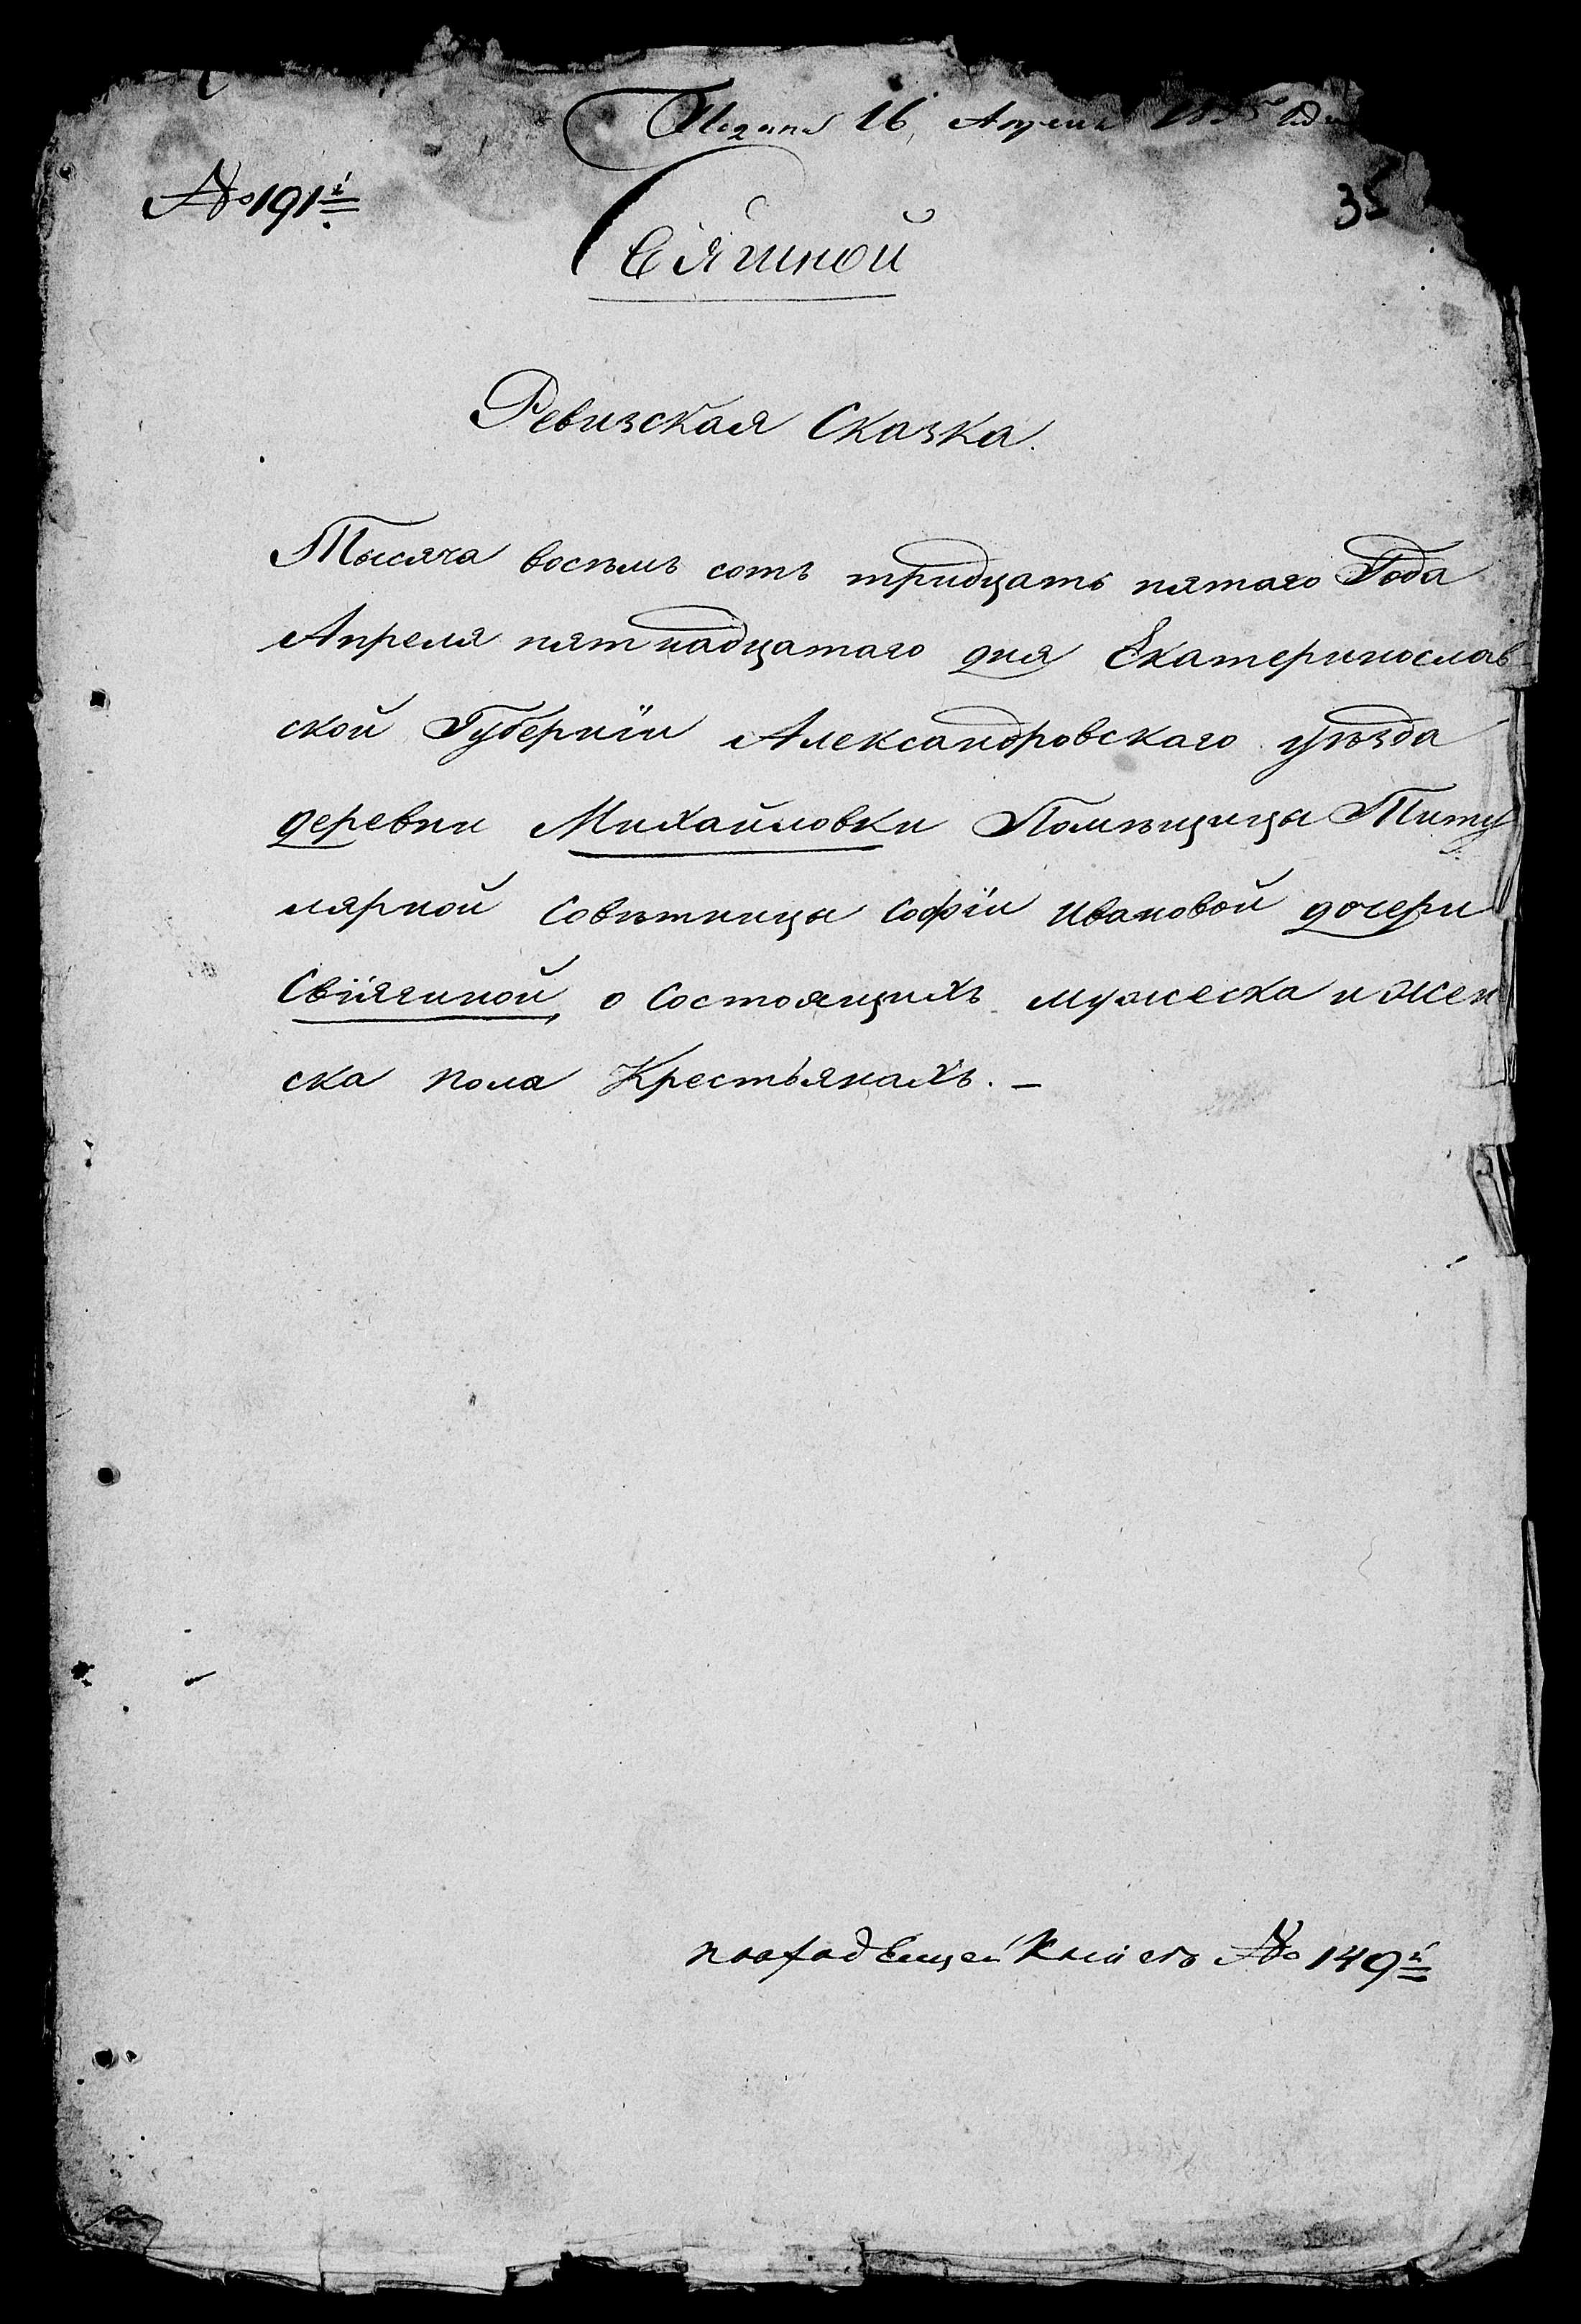 Подана 16 Апреля 1835 года
№ 191й
35
Свіягиной
Ревизская Сказка.
Тысяча восемь сотъ тридцать пятаго Года
Апреля пятнадцатаго дня Екатеринослав-
ской Губерніи Александровскаго уѣзда
деревни Михайловки Помѣщицы Титу
лярной Совѣтницы Софіи Ивановой дочери
Свіягиной, о Состоящихъ мужеска и жен
ска пола Крестьянахъ. –
№ 149й